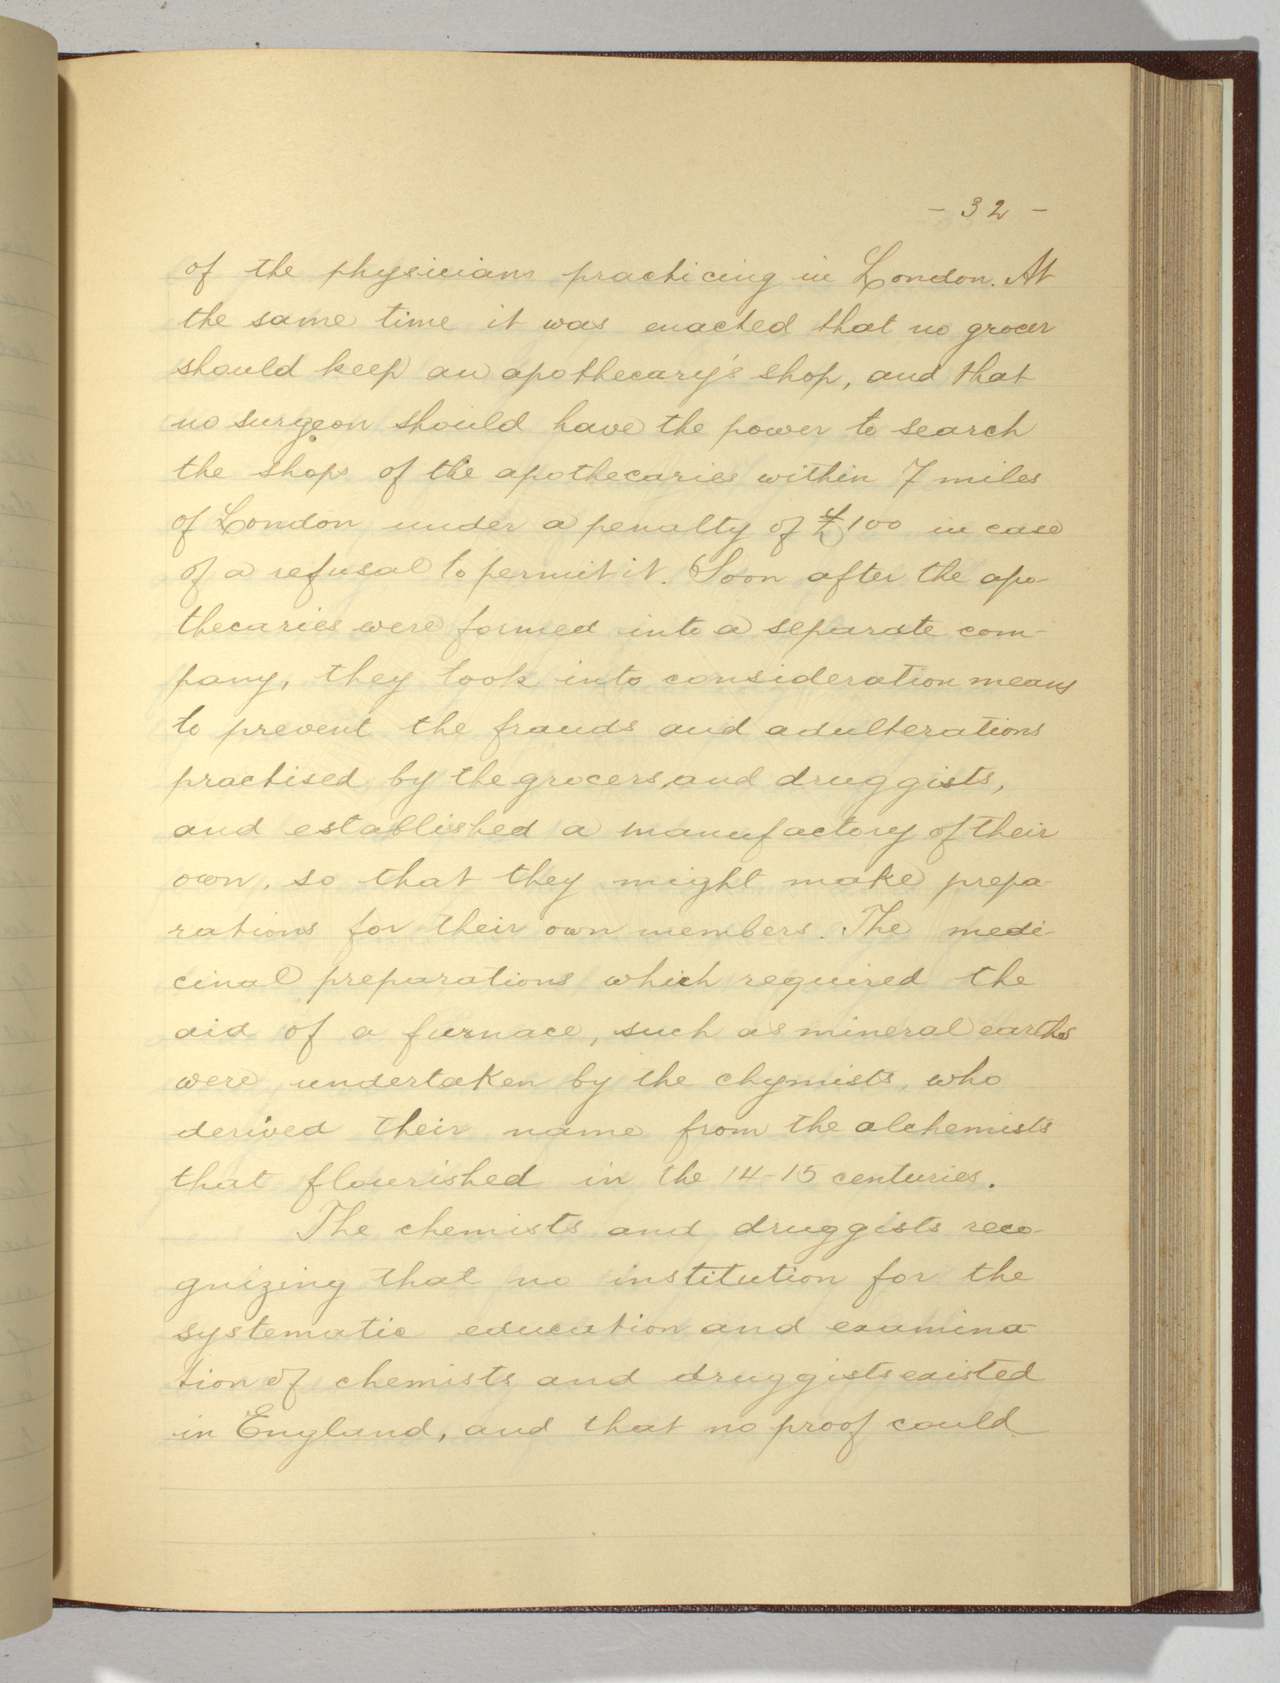 - 32 -
of the physicians practicing in London. At
the same time it was enacted that no grocer
should keep an apothecary's shop, and that
no surgeon should have the power to search
the shops of the apothecaries within 7 miles
of London under a penalty of £100 in case
of a refusal to permit it. Soon after the apo-
thecaries were formed into a separate com-
pany, they took into consideration means
to prevent the frauds and adulterations
practised by the grocers and druggists,
and established a manufactory of their
own, so that they might make prepa-
rations for their own members. The medi-
cinal preparations which required the
aid of a furnace, such as mineral earths
were undertaken by the chymists, who
derived their name from the alchemists
that flourished in the 14-15 centuries.
The chemists and druggists reco-
gnizing that no institution for the
systematic education and examina-
tion of chemists and druggists existed
in England, and that no proof could